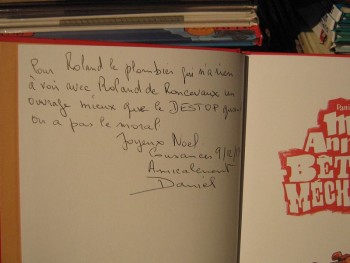 Pour Roland le plombier qui n'a rien
à voir avec Roland de Roncevaux un
ouvrage mieux que le DESTOP quand
on a pas le moral
Joyeux Noel
9/12/
Amicalement
Daniel
BÊT
MÉCH